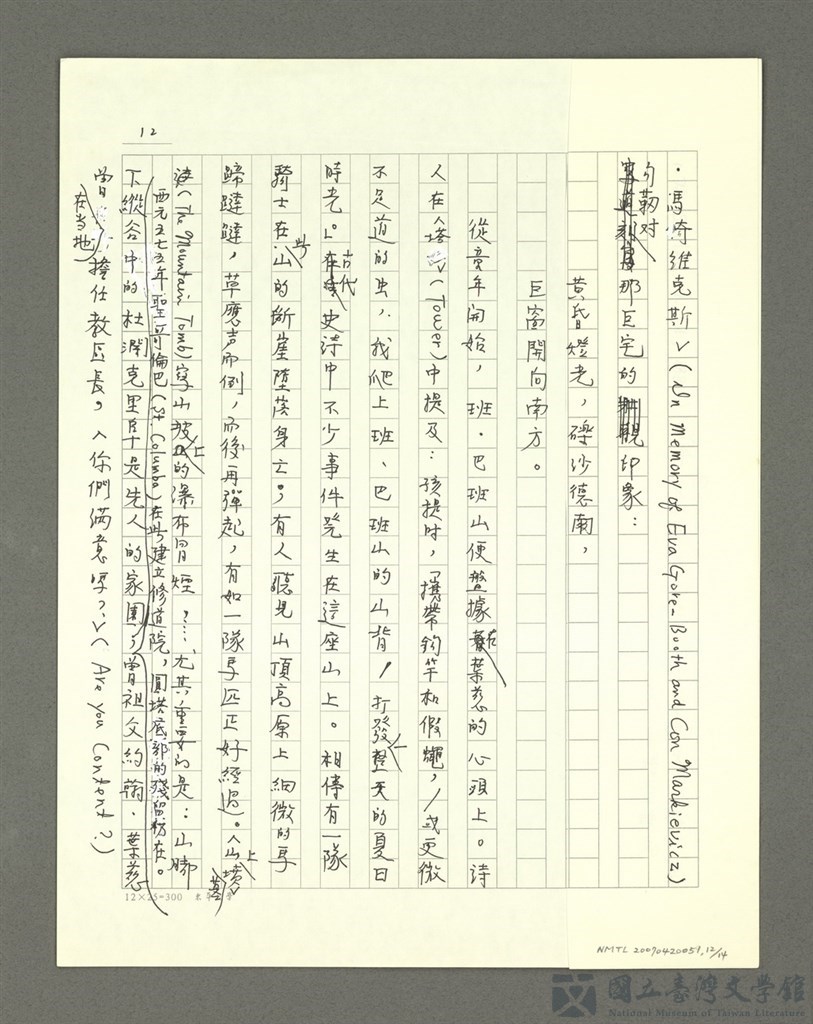 12
·馮烤維克斯﹀(In Memory of Eva Gore-Booth and Con Markievicz)
勾勒对那巨宅的印象：
黃昏燈光，礫沙德南，
巨窗開向南方。
從童年開始，班·巴班山便盤據在葉慈的心頭上。詩
人在︿塔﹀(Tower)中提及：孩提时，「攜帶釣竿和假蠅，/或更微
不足道的虫，我爬上班、巴班山的山背/打發整天的夏日
時光。」古代史詩中不少事件発生在這座山上。相傳有一隊
騎士在此山的斷崖墮落身亡；有人聽見山頂高原上細微的馬
蹄躂躂，草應声而倒，而後再彈起，有如一隊馬匹正好經過。︿山上
墓﹀(The Mountain Tomb)寫山坡上的瀑布冒煙，……尤其重要的是：山腳
西元五七五年聖可倫巴(St. Columba)在此建立修道院，圓塔底部的殘留仍在。
下縱谷中的杜潤克里阜是先人的家園，曾祖父約翰·葉慈
曾在当地擔任教區長，︿你們滿意嗎？﹀(Are you Content?)
12×25=300
NMTL 20090420051, 12/14
國立臺灣文學館
National Museum of Taiwan Literature